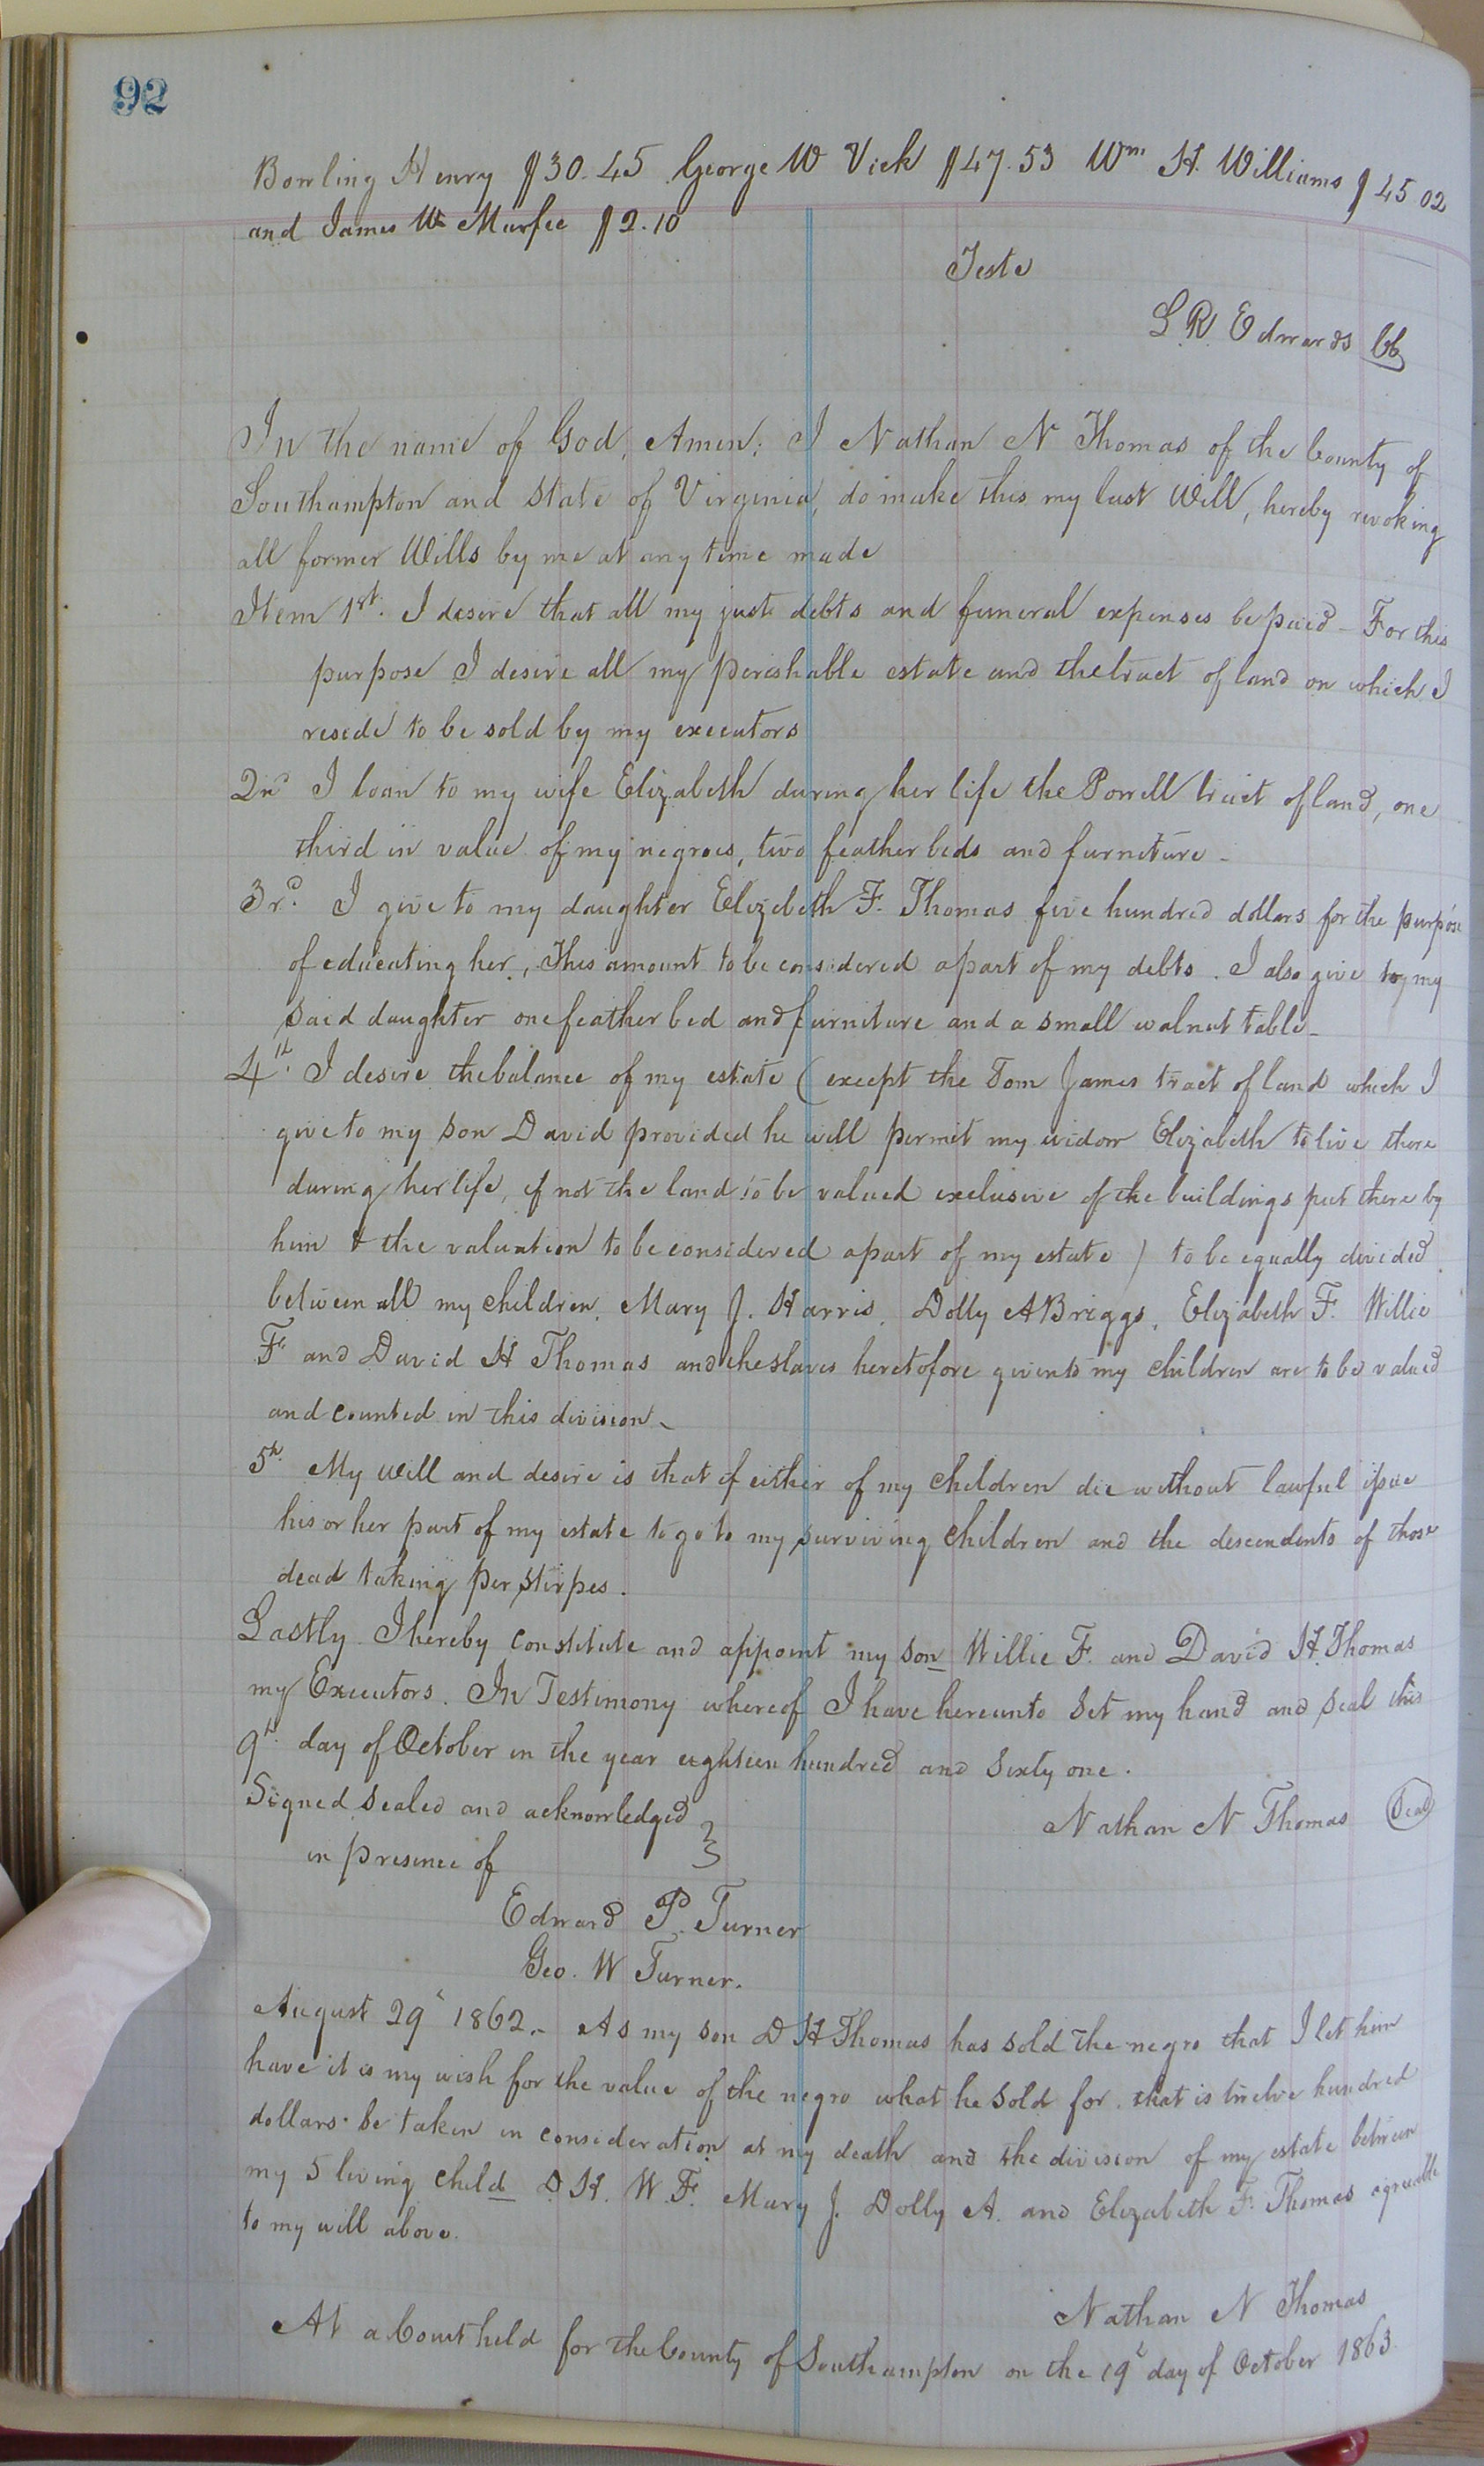 92
Bowling Henry $30.45 George W Vick $47.53 Wm H. Williams $45 02
and James W Murfee $2.10
Teste
L R Edwards CC
In the name of God, Amen; I Nathan N Thomas of the County of
Southampton and State of Virginia, do make this my last Will, hereby revoking
all former Wills by me at any time made
Item 1st. I desire that all my just debts and funeral expenses be paid - For this
purpose I desire all my perishable estate and the tract of land on which I
reside to be sold by my executors
2nd I loan to my wife Elizabeth during her life the Powell tract of land, one
third in value of my negroes, two feather beds and furniture -
3rd. I give to my daughter Elizebeth F. Thomas five hundred dollars for the purpose
of educating her, This amount to be considered apart of my debts. I also give to my
said daughter one feather bed and furniture and a small walnut table -
4th. I desire the balance of my estate (except the Tom James tract of land which I
give to my son David provided he will permit my widow Elizabeth to live there
during her life, if not the land to be valued exclusive of the buildings put there by
him & the valuation to be considered apart of my estate) to be equally divided
between all my children, Mary J. Harris, Dolly A Briggs, Elizabeth F. Willie
F. and David H Thomas and the slaves heretofore given to my children are to be valued
and counted in this division -
5th. My will and desire is that if either of my children die without lawful issue
his or her part of my estate to go to my surviving children and the descendents of those
dead taking per stirpes.
Lastly I hereby constitute and appoint my son Willie F. and David H. Thomas
my Executors. In Testimony whereof I have hereunto set my hand and seal this
9th. day of October in the year eighteen hundred and sixty one.
Signed sealed and acknowledged
Nathan N Thomas (Seal)
in presence of
Edward P. Turner
Geo. W Turner.
August 29th 1862. - As my son D H Thomas has sold the negro that I let him
have it is my wish for the value of the negro what he sold for, that is twelve hundred
dollars be taken in consideration at my death and the division of my estate between
my 5 living child D. H. W. F. Mary J. Dolly A. and Elizabeth F. Thomas agreeable
to my will above.
Nathan N Thomas
At a Court held for the County of Southampton on the 19th day of October 1863.